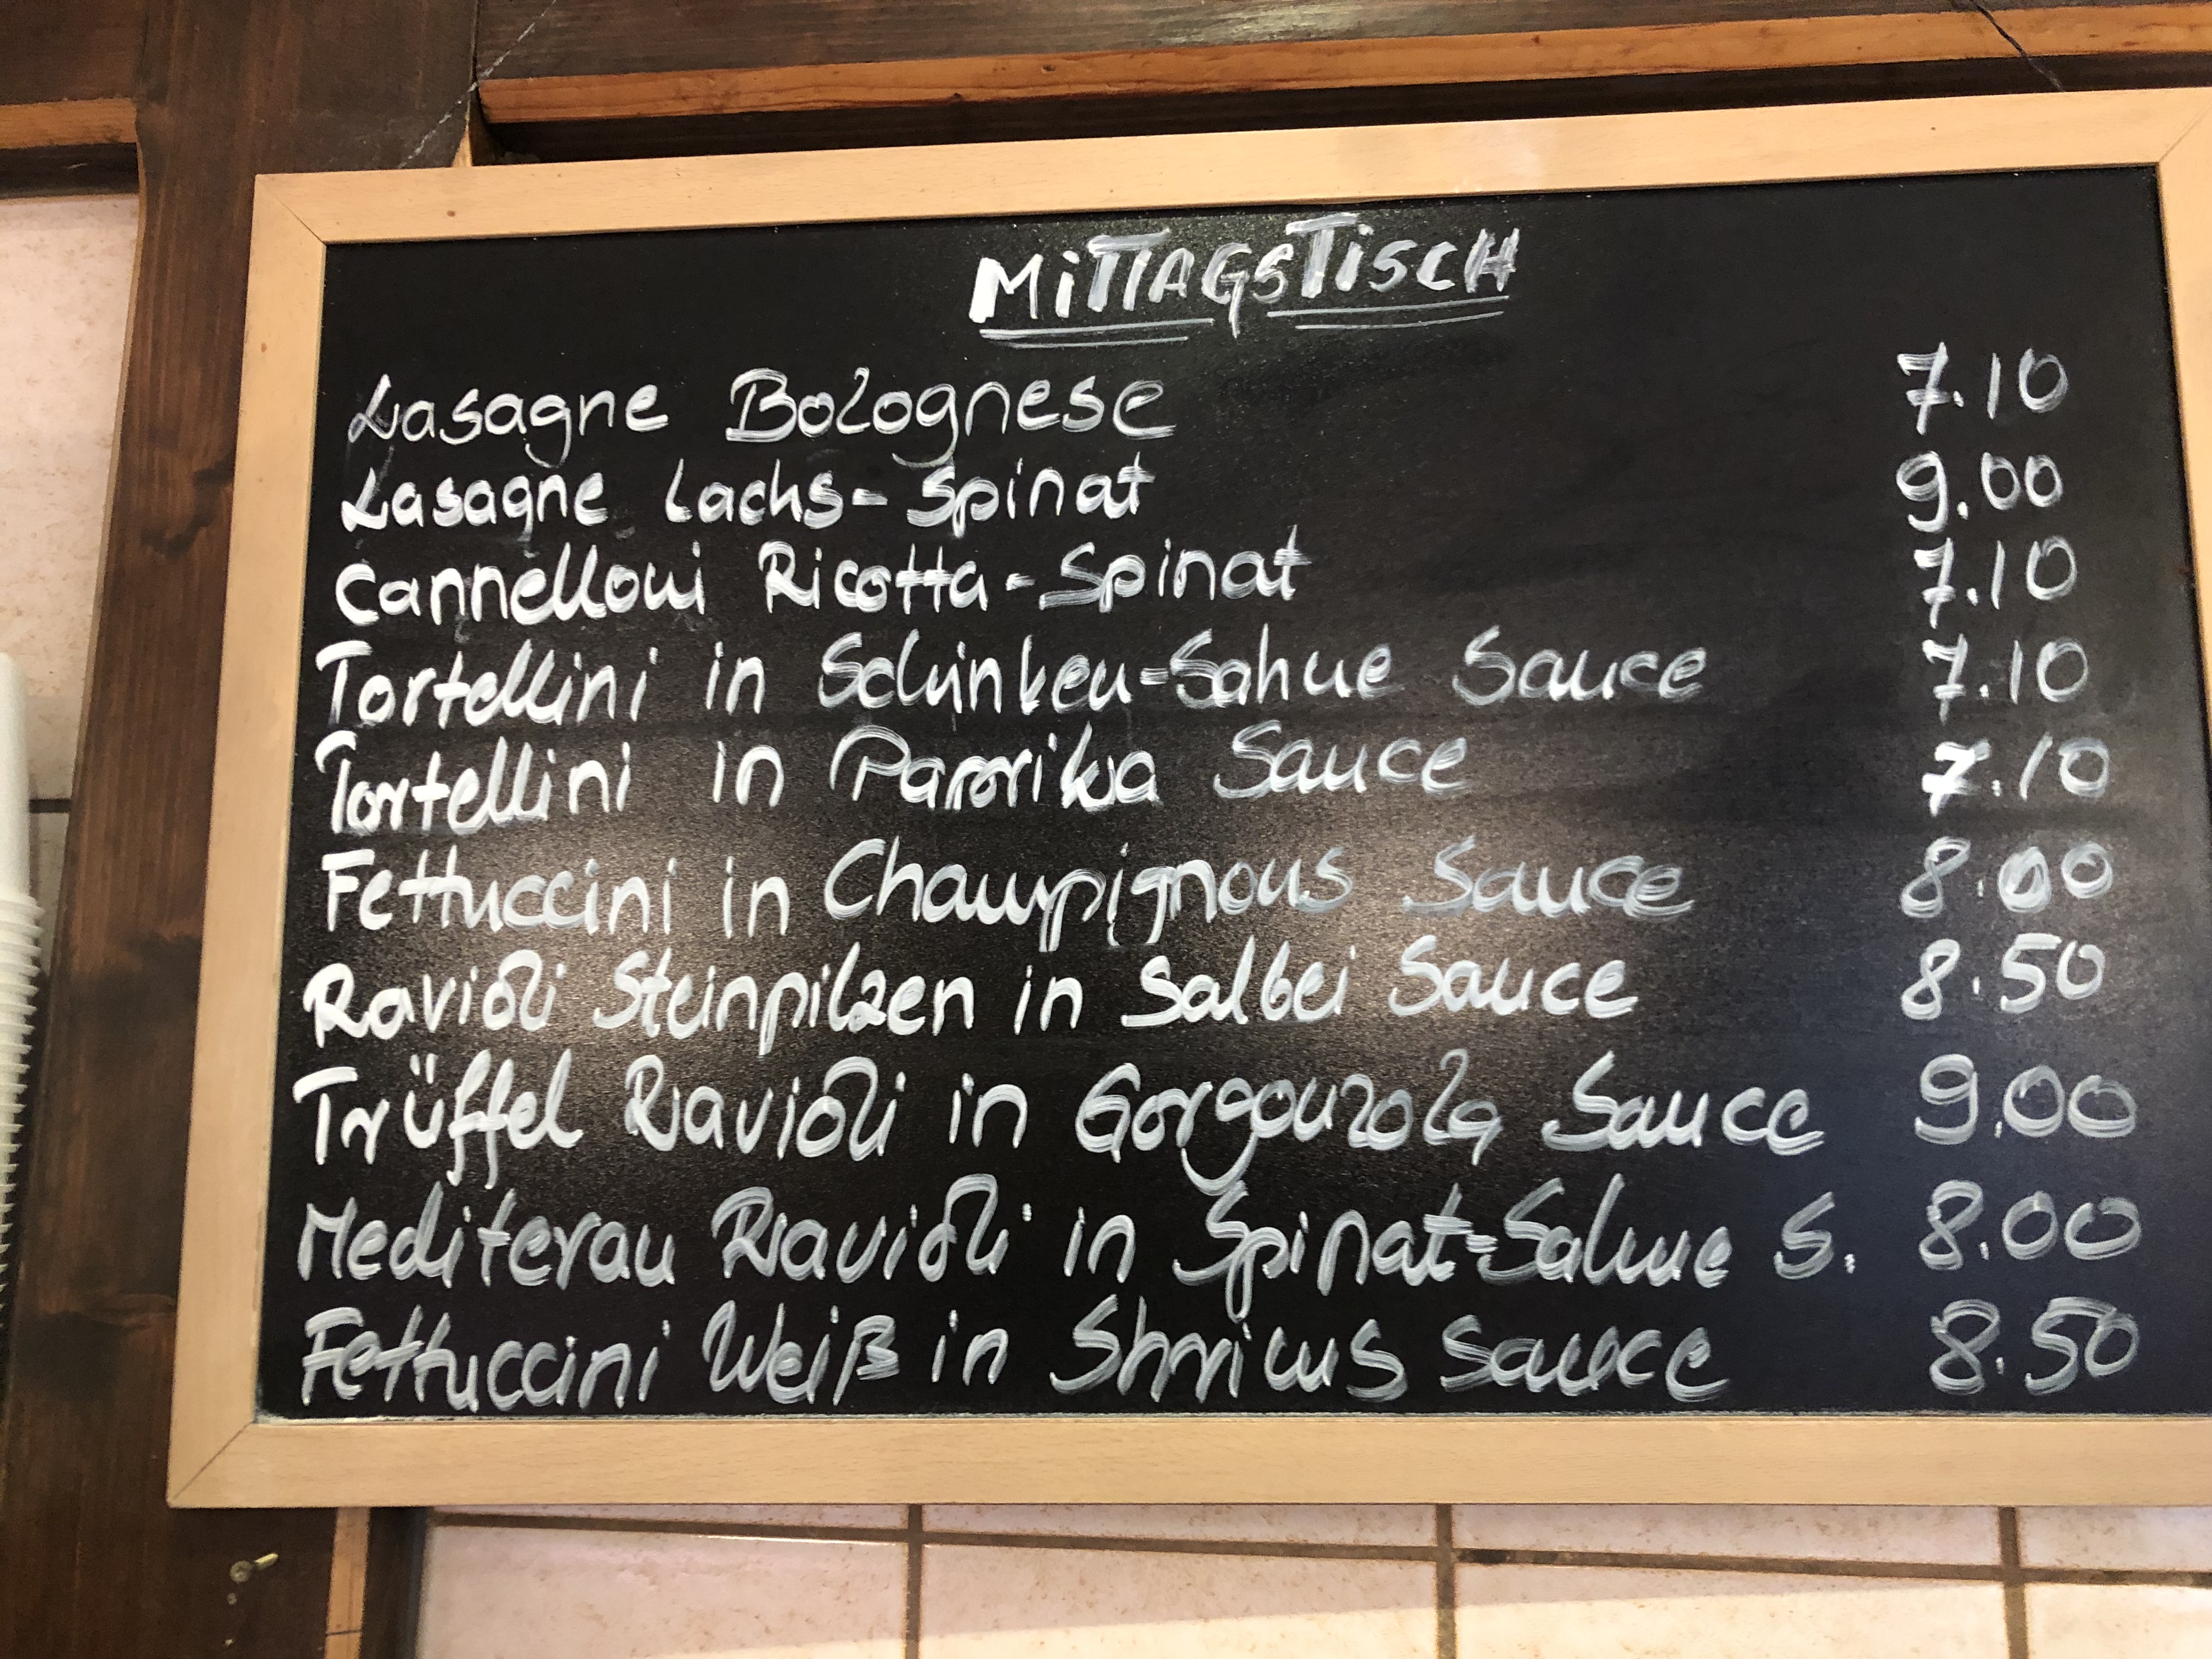 MITTAGSTISCH
Lasagne Bolognese 7.10
Lasagne Lachs-Spinat 9.00
Cannelloni Ricotta-Spinat 7.10
Tortellini in Schinken-Sahne Sauce 7.10
Tortellini in Paprika Sauce 7.10
Fettuccini in Champignons Sauce 8.00
Ravioli Steinpilzen in Salbei Sauce 8.50
Trüffel Ravioli in Gorgonzola Sauce 9.00
Mediteran Ravioli in Spinat-Sahne S. 8.00
Fettuccini Weiß in Shrims Sauce 8.50